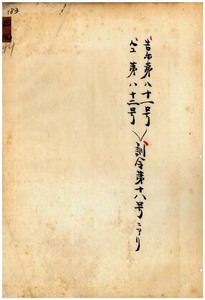 第八十一号
仝第八十三号
訓令第十八号ニアリ
183